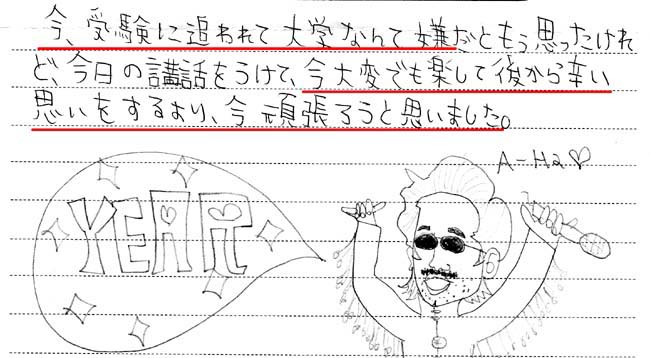 今、受験に追われて大学なんて嫌だともう思ったけれ
ど、今日の講話をうけて、今大変でも楽して後から辛い
思いをするより、今頑張ろうと思いました。
A-Ha♡
YEAR